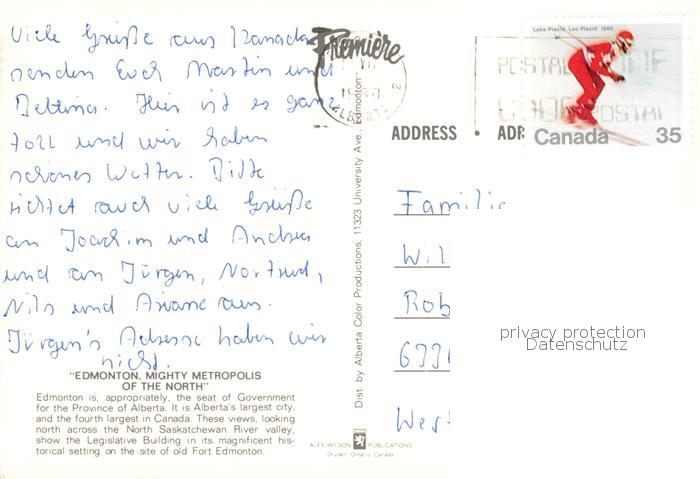 Viele Grüße aus Kanada
senden Euch Martin und
Bettina. Hier ist es ganz
toll und wir haben
schönes Wetter. Bitte
richtet auch viele Grüße
an Joachim und Andrea
und an Jürgen, Nortrud,
Nils und Ariane aus.
Jürgen's Adresse haben wir
nicht.
"EDMONTON, MIGHTY METROPOLIS
OF THE NORTH"
Edmonton is, appropriately, the seat of Government
for the Province of Alberta. It is Alberta's largest city,
and the fourth largest in Canada. These views, looking
north across the North Saskatchewan River valley,
show the Legislative Building in its magnificent his-
torical setting on the site of old Fort Edmonton.
Première
ALBERTA 2
Dist. by Alberta Color Productions, 11323 University Ave., Edmonton
ALEX WILSON PUBLICATIONS
Dryden Ontario Canada
Lake Placid Lac Placid 1980
POSTAL
POSTAL
Canada 35
ADDRESS • ADR
Familie
Wil
Rob
633
West
privacy protection
Datenschutz